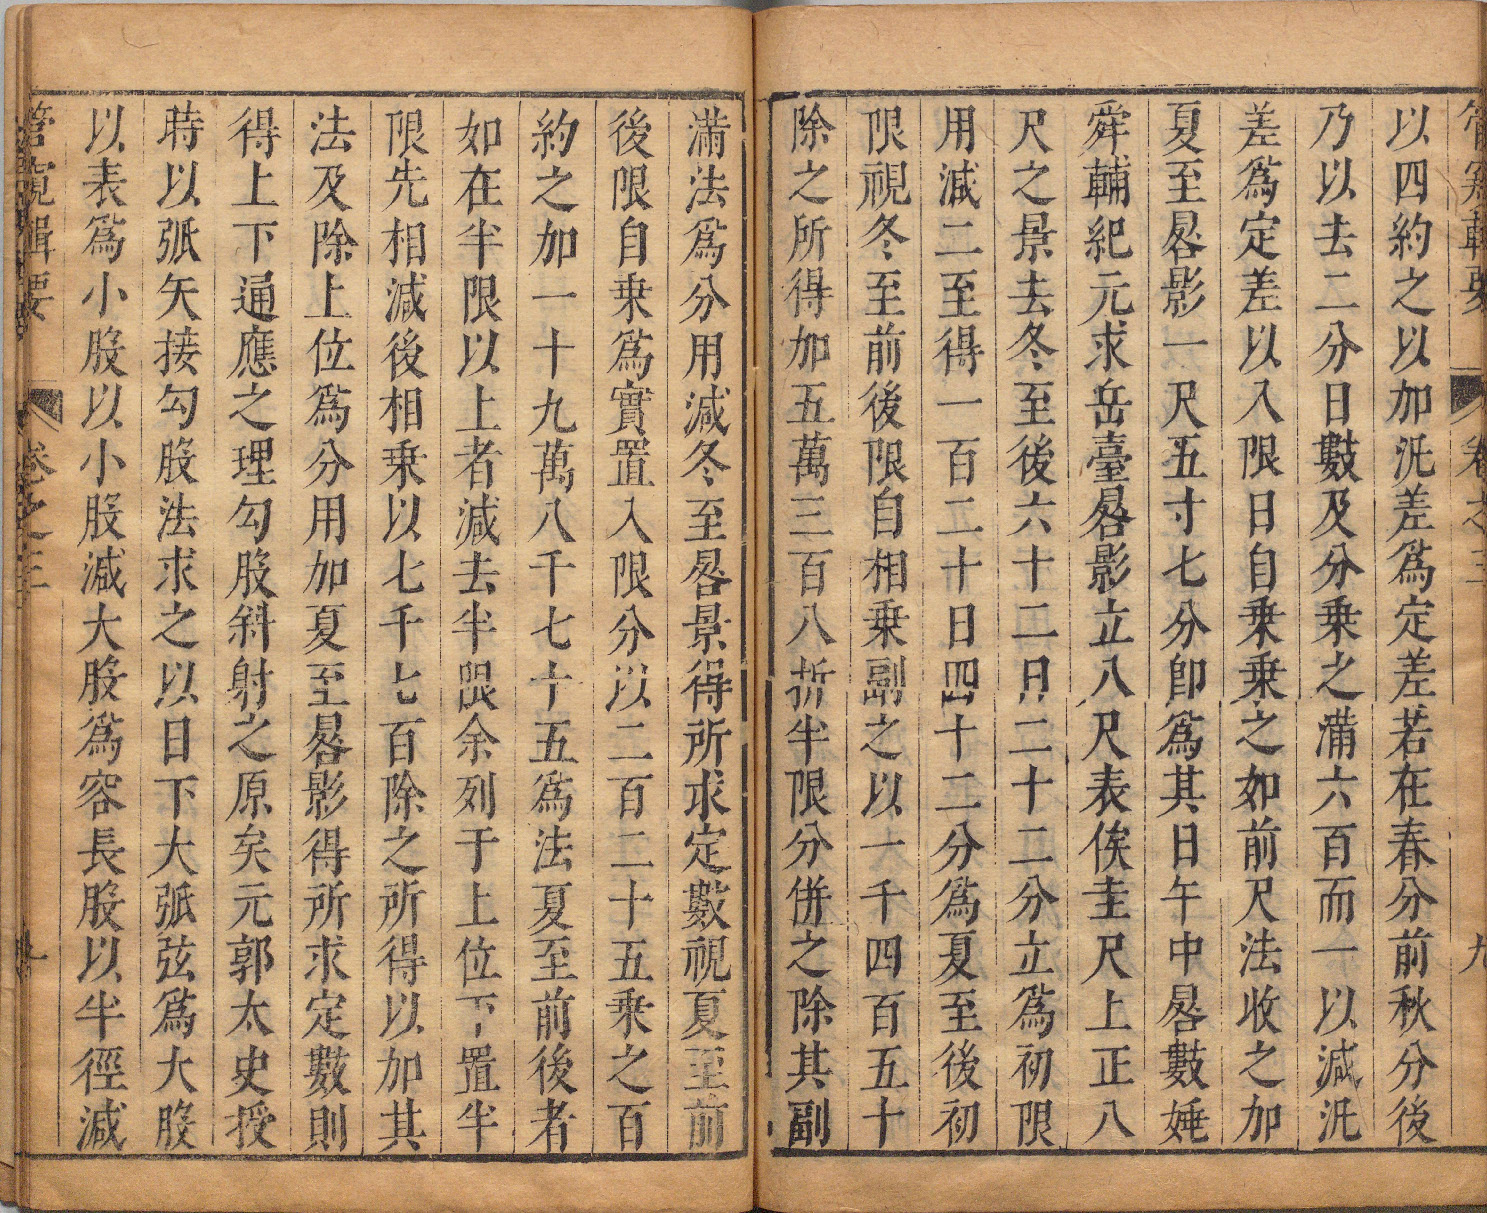 管窺輯要 卷之三 九
以四約之以加汎差爲定差若在春分前秋分後
乃以去二分日數及分乘之滿六百而一以減汎
差爲定差以入限日自乘乘之如前尺法收之加
夏至晷影一尺五寸七分卽爲其日午中晷數姚
舜輔紀元求岳臺晷影立八尺表俟圭尺上正八
尺之景去冬至後六十二日二十二分立爲初限
用減二至得一百二十日四十二分爲夏至後初
限視冬至前後限自相乘副之以一千四百五十
除之所得加五萬三百八折半限分併之除其副
滿法爲分用減冬至晷景得所求定數視夏至前
後限自乘爲實置入限分以二百二十五乘之百
約之加一十九萬八千七十五爲法夏至前後者
如在半限以上者減去半限余列于上位下置半
限先相減後相乘以七千七百除之所得以加其
法及除上位爲分用加夏至晷影得所求定數則
得上下通應之理勾股斜射之原矣元郭太史授
時以弧矢接勾股法求之以日下大弧弦爲大股
以表爲小股以小股減大股爲容長股以半徑減
管窺輯要 卷之三